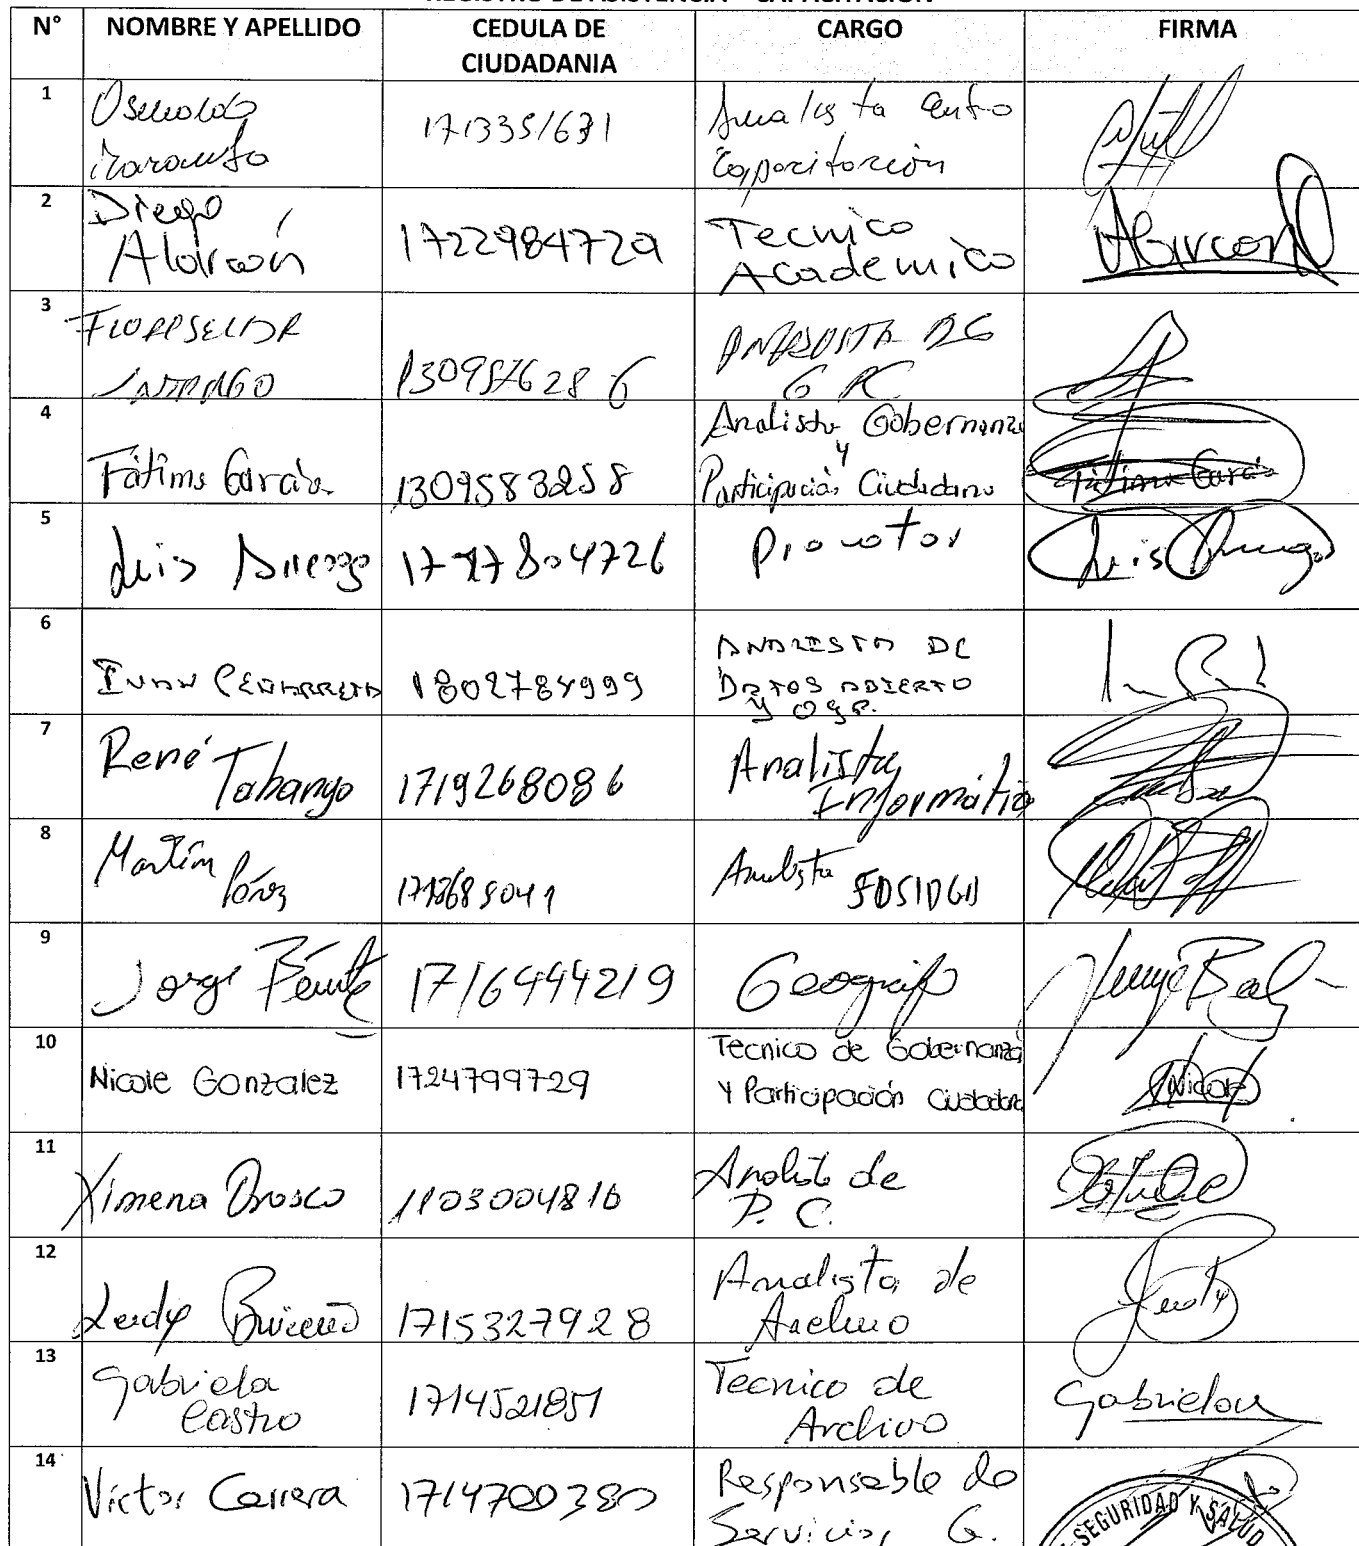 REGISTRO DE ASISTENCIA – CAPACITACIÓN
N° NOMBRE Y APELLIDO CEDULA DE CIUDADANIA CARGO FIRMA
1
Oswaldo
1713351631
Analista Centro
Capacitación
2
Diego
Alarcón
1722984729
Tecnico
Academico
Alarcon
3
130957628 6
4
Fátima García
1309583258
Analista Gobernanza
y
Participación Ciudadana
Fátima García
5
Luis
1717804726
Promotor
Luis
6
IVAN PEÑARRETA
1802784999
ANALISTA DE
DATOS ABIERTO
Y
7
René
Tabango
1719268086
Analista
Informática
8
Martín
Pérez
Analista
9
Jorge
1716444219
Geografo
10
Nicole Gonzalez
1724799729
Tecnico de Gobernanza
y Participación Ciudadana
Nicole
11
Ximena Orosco
1103004816
Analista de
P. C.
12
Leidy Briceño
1715327928
Analista de
Archivo
13
Gabriela
Castro
1714521851
Tecnico de
Archivo
Gabriela
14
Victor Carrera
1714700380
Responsable de
Servicios G.
SEGURIDAD Y SALUD